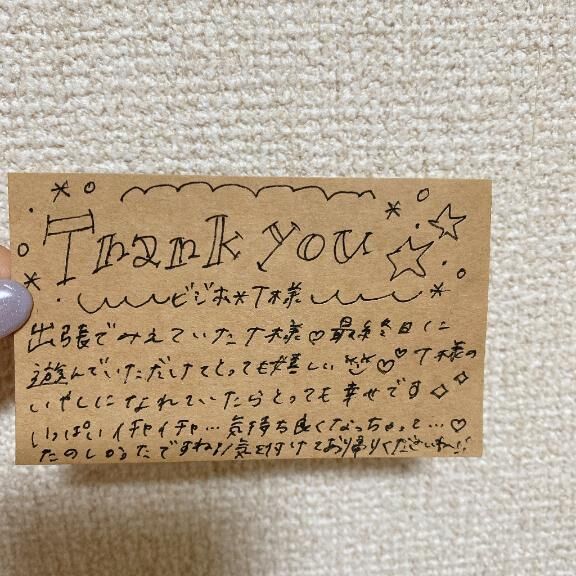 Thank you
ビジホ*T様
出張でみえていたT様♡最終日に
遊んでいただけてとっても嬉しい♡♡T様の
いやしになれていたらとっても幸せです◇◇
いっぱいイチャイチャ…気持ち良くなっちゃって…♡
たのしかったですね!!気を付けてお帰りくださいね!!